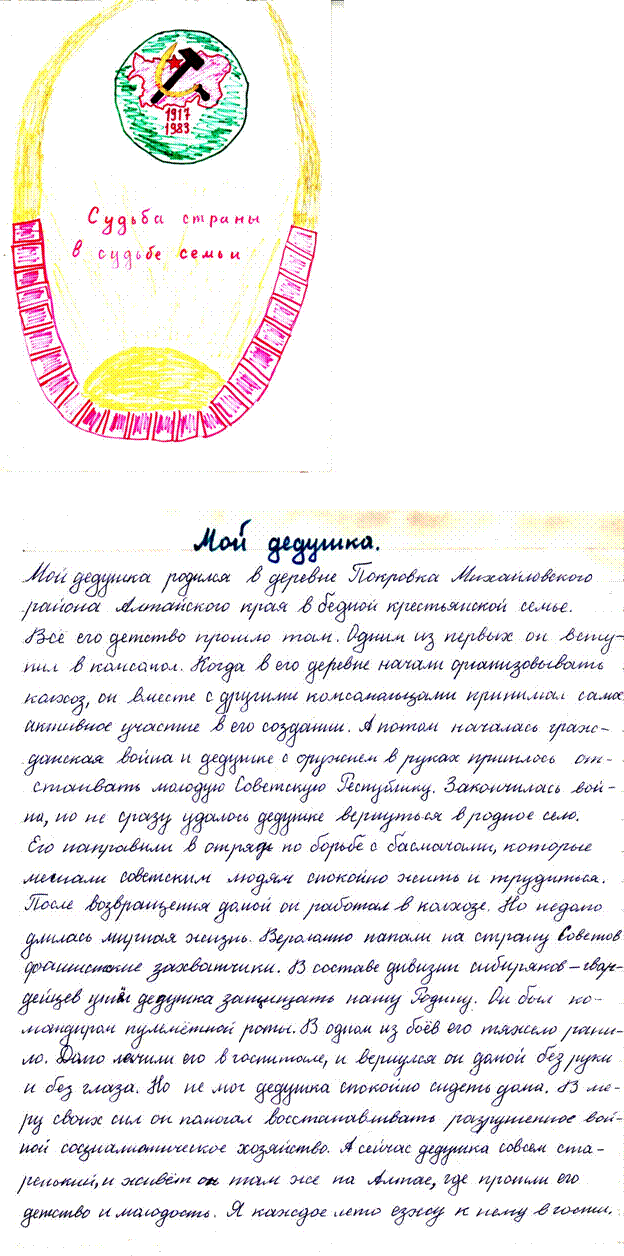 1917
1983
Судьба страны
в судьбе семьи
Мой дедушка.
Мой дедушка родился в деревне Покровка Михайловского
района Алтайского края в бедной крестьянской семье.
Всё его детство прошло там. Одним из первых он всту-
пил в комсомол. Когда в его деревне начали организовывать
колхоз, он вместе с другими комсомольцами принимал самое
активное участие в его создании. А потом началась граж-
данская война и дедушке с оружием в руках пришлось от-
стаивать молодую Советскую Республику. Закончилась вой-
на, но не сразу удалось дедушке вернуться в родное село.
Его направили в отряд по борьбе с басмачами, которые
мешали советским людям спокойно жить и трудиться.
После возвращения домой он работал в колхозе. Но недолго
длилась мирная жизнь. Вероломно напали на страну Советов
фашистские захватчики. В составе дивизии сибиряков-гвар-
дейцев ушёл дедушка защищать нашу Родину. Он был ко-
мандиром пулемётной роты. В одном из боёв его тяжело рани-
ло. Долго лечили его в госпитале, и вернулся он домой без руки
и без глаза. Но не мог дедушка спокойно сидеть дома. В ме-
ру своих сил он помогал восстанавливать разрушенное вой-
ной социалистическое хозяйство. А сейчас дедушка совсем ста-
ренький, и живёт он там же на Алтае, где прошли его
детство и молодость. Я каждое лето езжу к нему в гости.